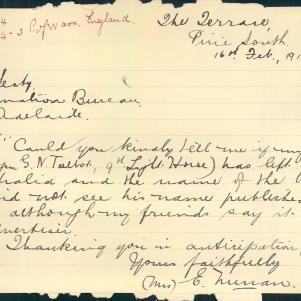 4-3 P of War. England.
The Terrace,
Pirie South.
16th Feb., 191
mation Bureau,
Adelaide.
"Could you kindly tell me if my
G. N. Talbot, 9th Light Horse) has left
and the name of the
not see his name publishe
although my friends say it
vertiser.
Thanking you in anticipation
Yours faithfully
(Mrs) E.